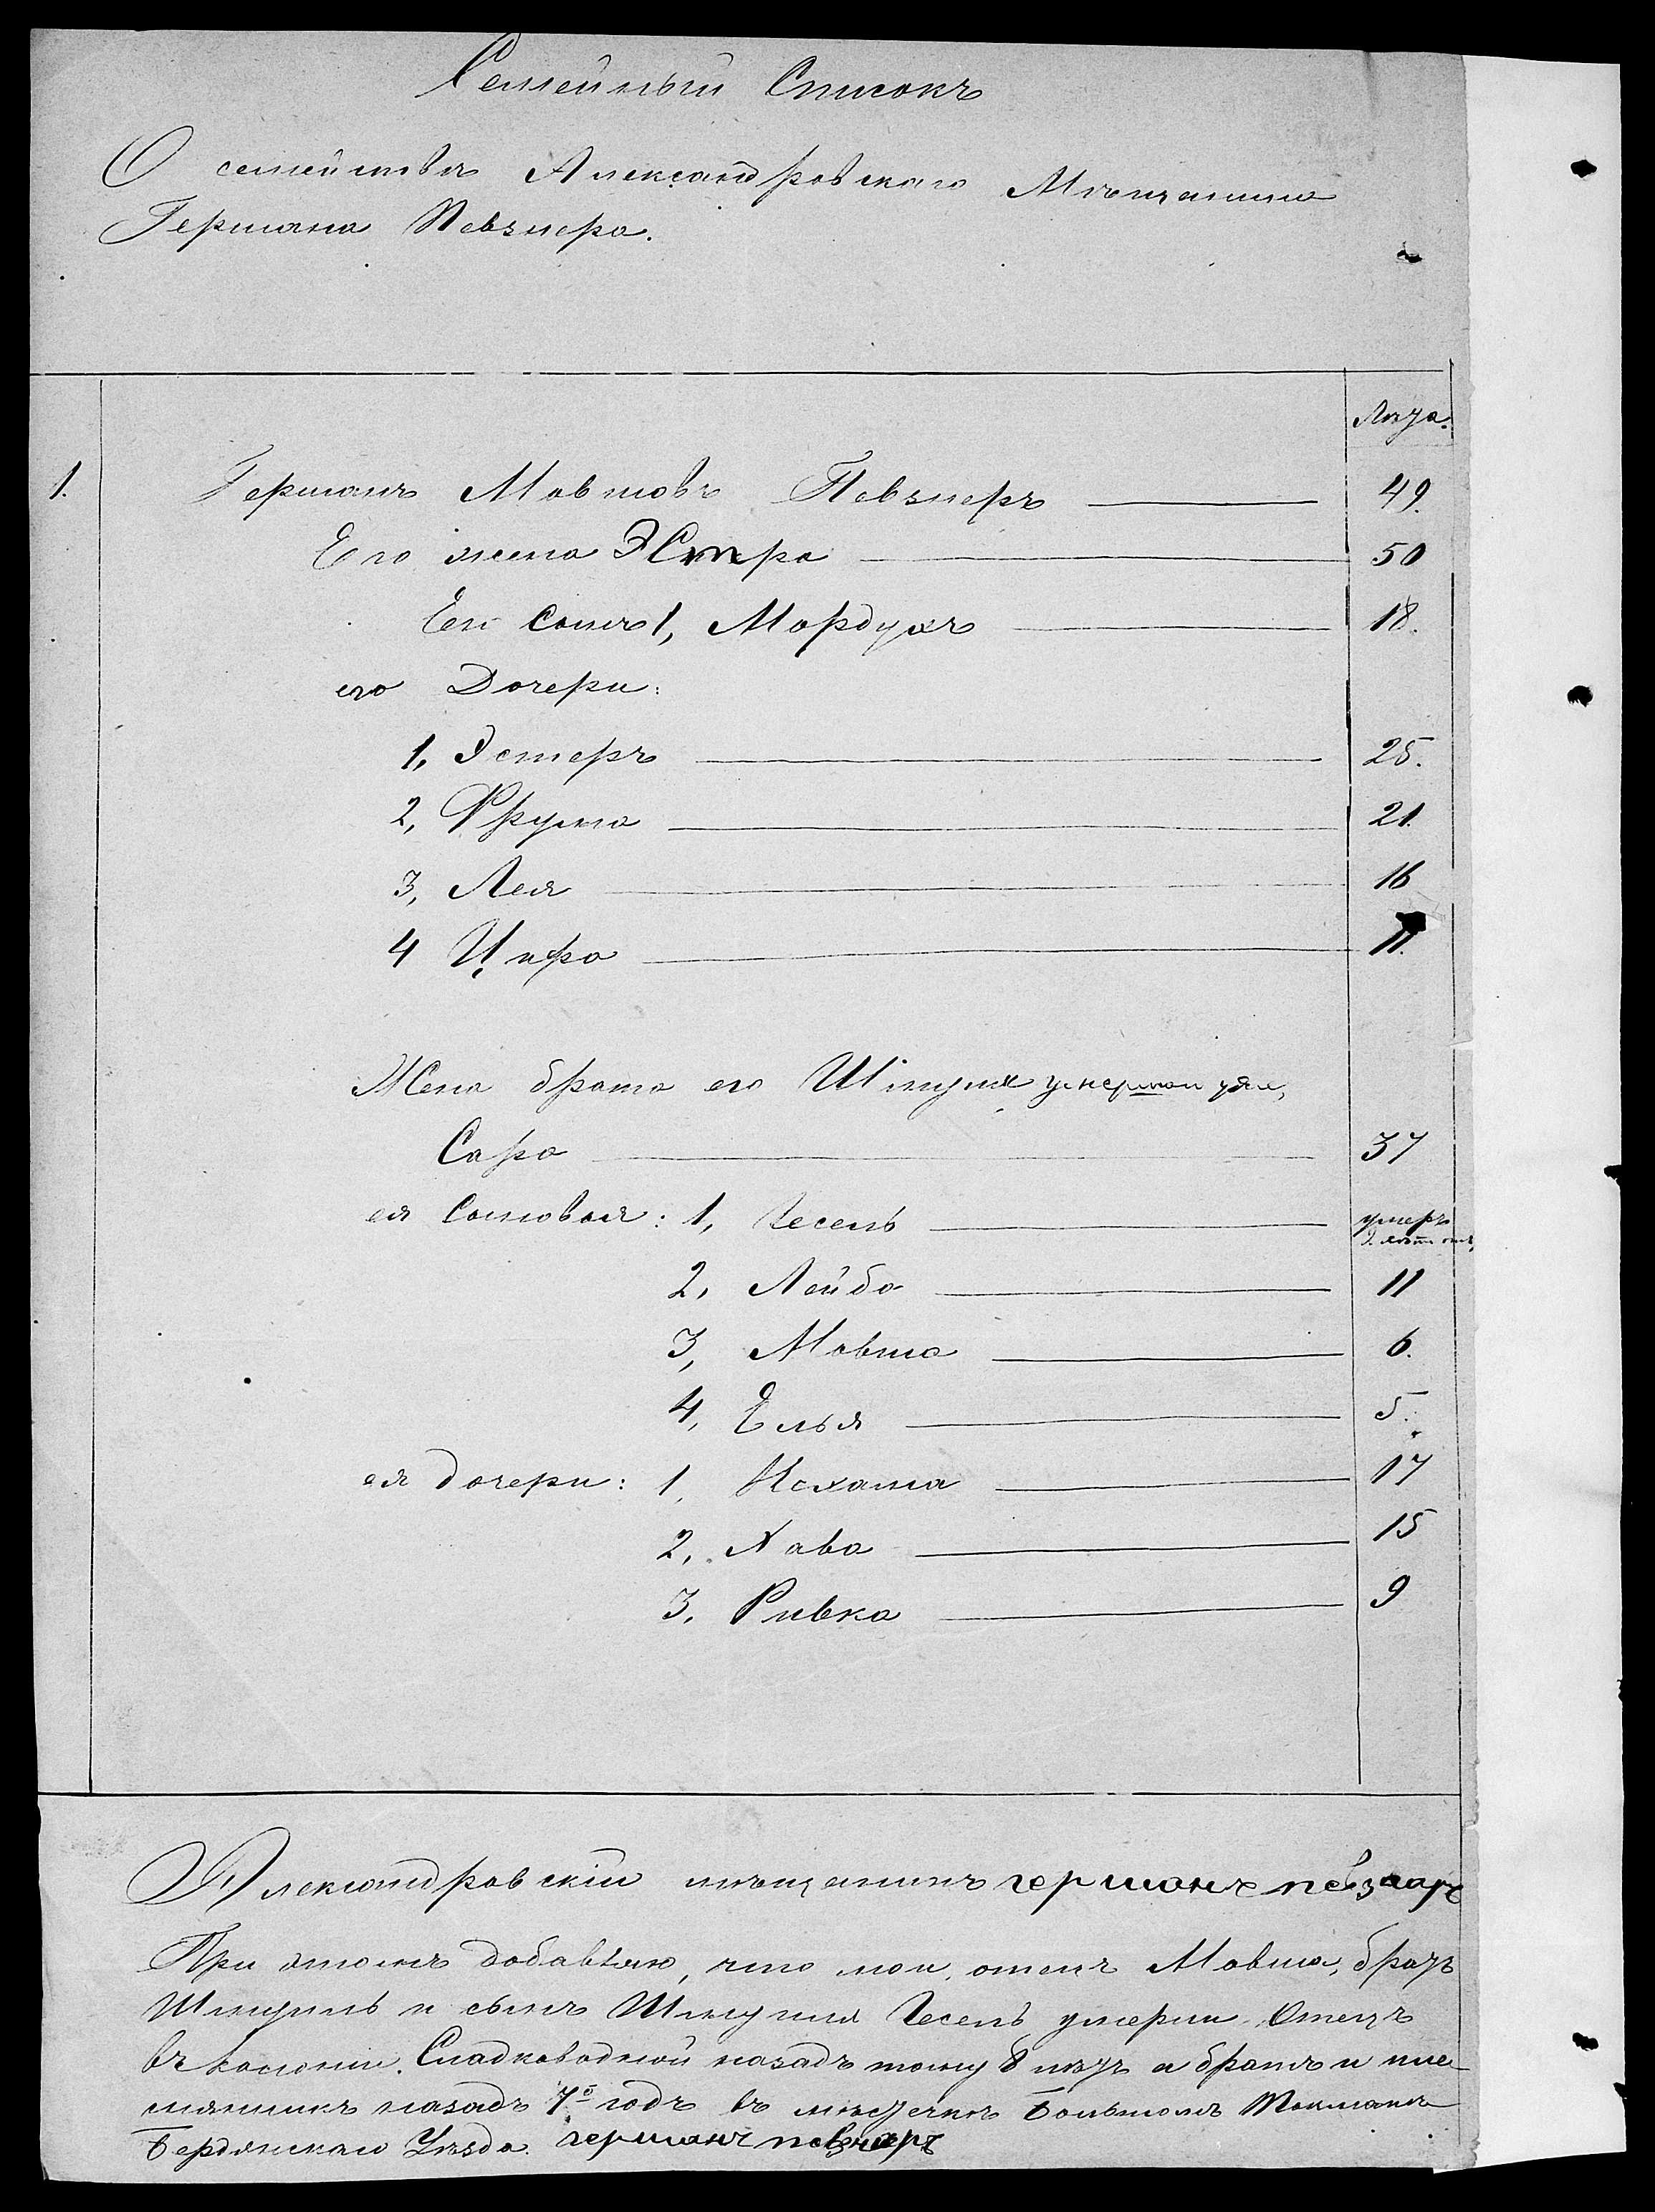 Семейный Списокъ
О семействѣ Александровскаго Мѣщанина
Германа Певзнера.
Лѣта.
1. Германъ Мовшовъ Певзнеръ 49.
Его жена Эстра 50
Его Сынъ 1, Мордухъ 18.
его Дочери:
1, Эстеръ 25.
2, Фрума 21.
3, Лея 16
4 Ципра 11.
Жена брата его Шмуля умершаго
Сара 37
ея Сыновья: 1, Іесель умеръ
2, Лейба 11
3, Мовша 6.
4, Елья 5.
ея дочери: 1, Нехама 17
2, Хава 15
3, Ривка 9
Александровскій мѣщанинъ германъ певзнаръ
При этомъ добавляю, что мой отецъ Мовша, братъ
Шмуиль и сынъ Шмуиля Іесель умерли. Отецъ
въ колоніи Сладководной назадъ тому 8 лѣтъ а братъ и пле-
мянникъ назадъ 7й годъ въ мѣстечкѣ Большомъ Токмакѣ
Бердянскаго Уѣзда. германъ певзнеръ